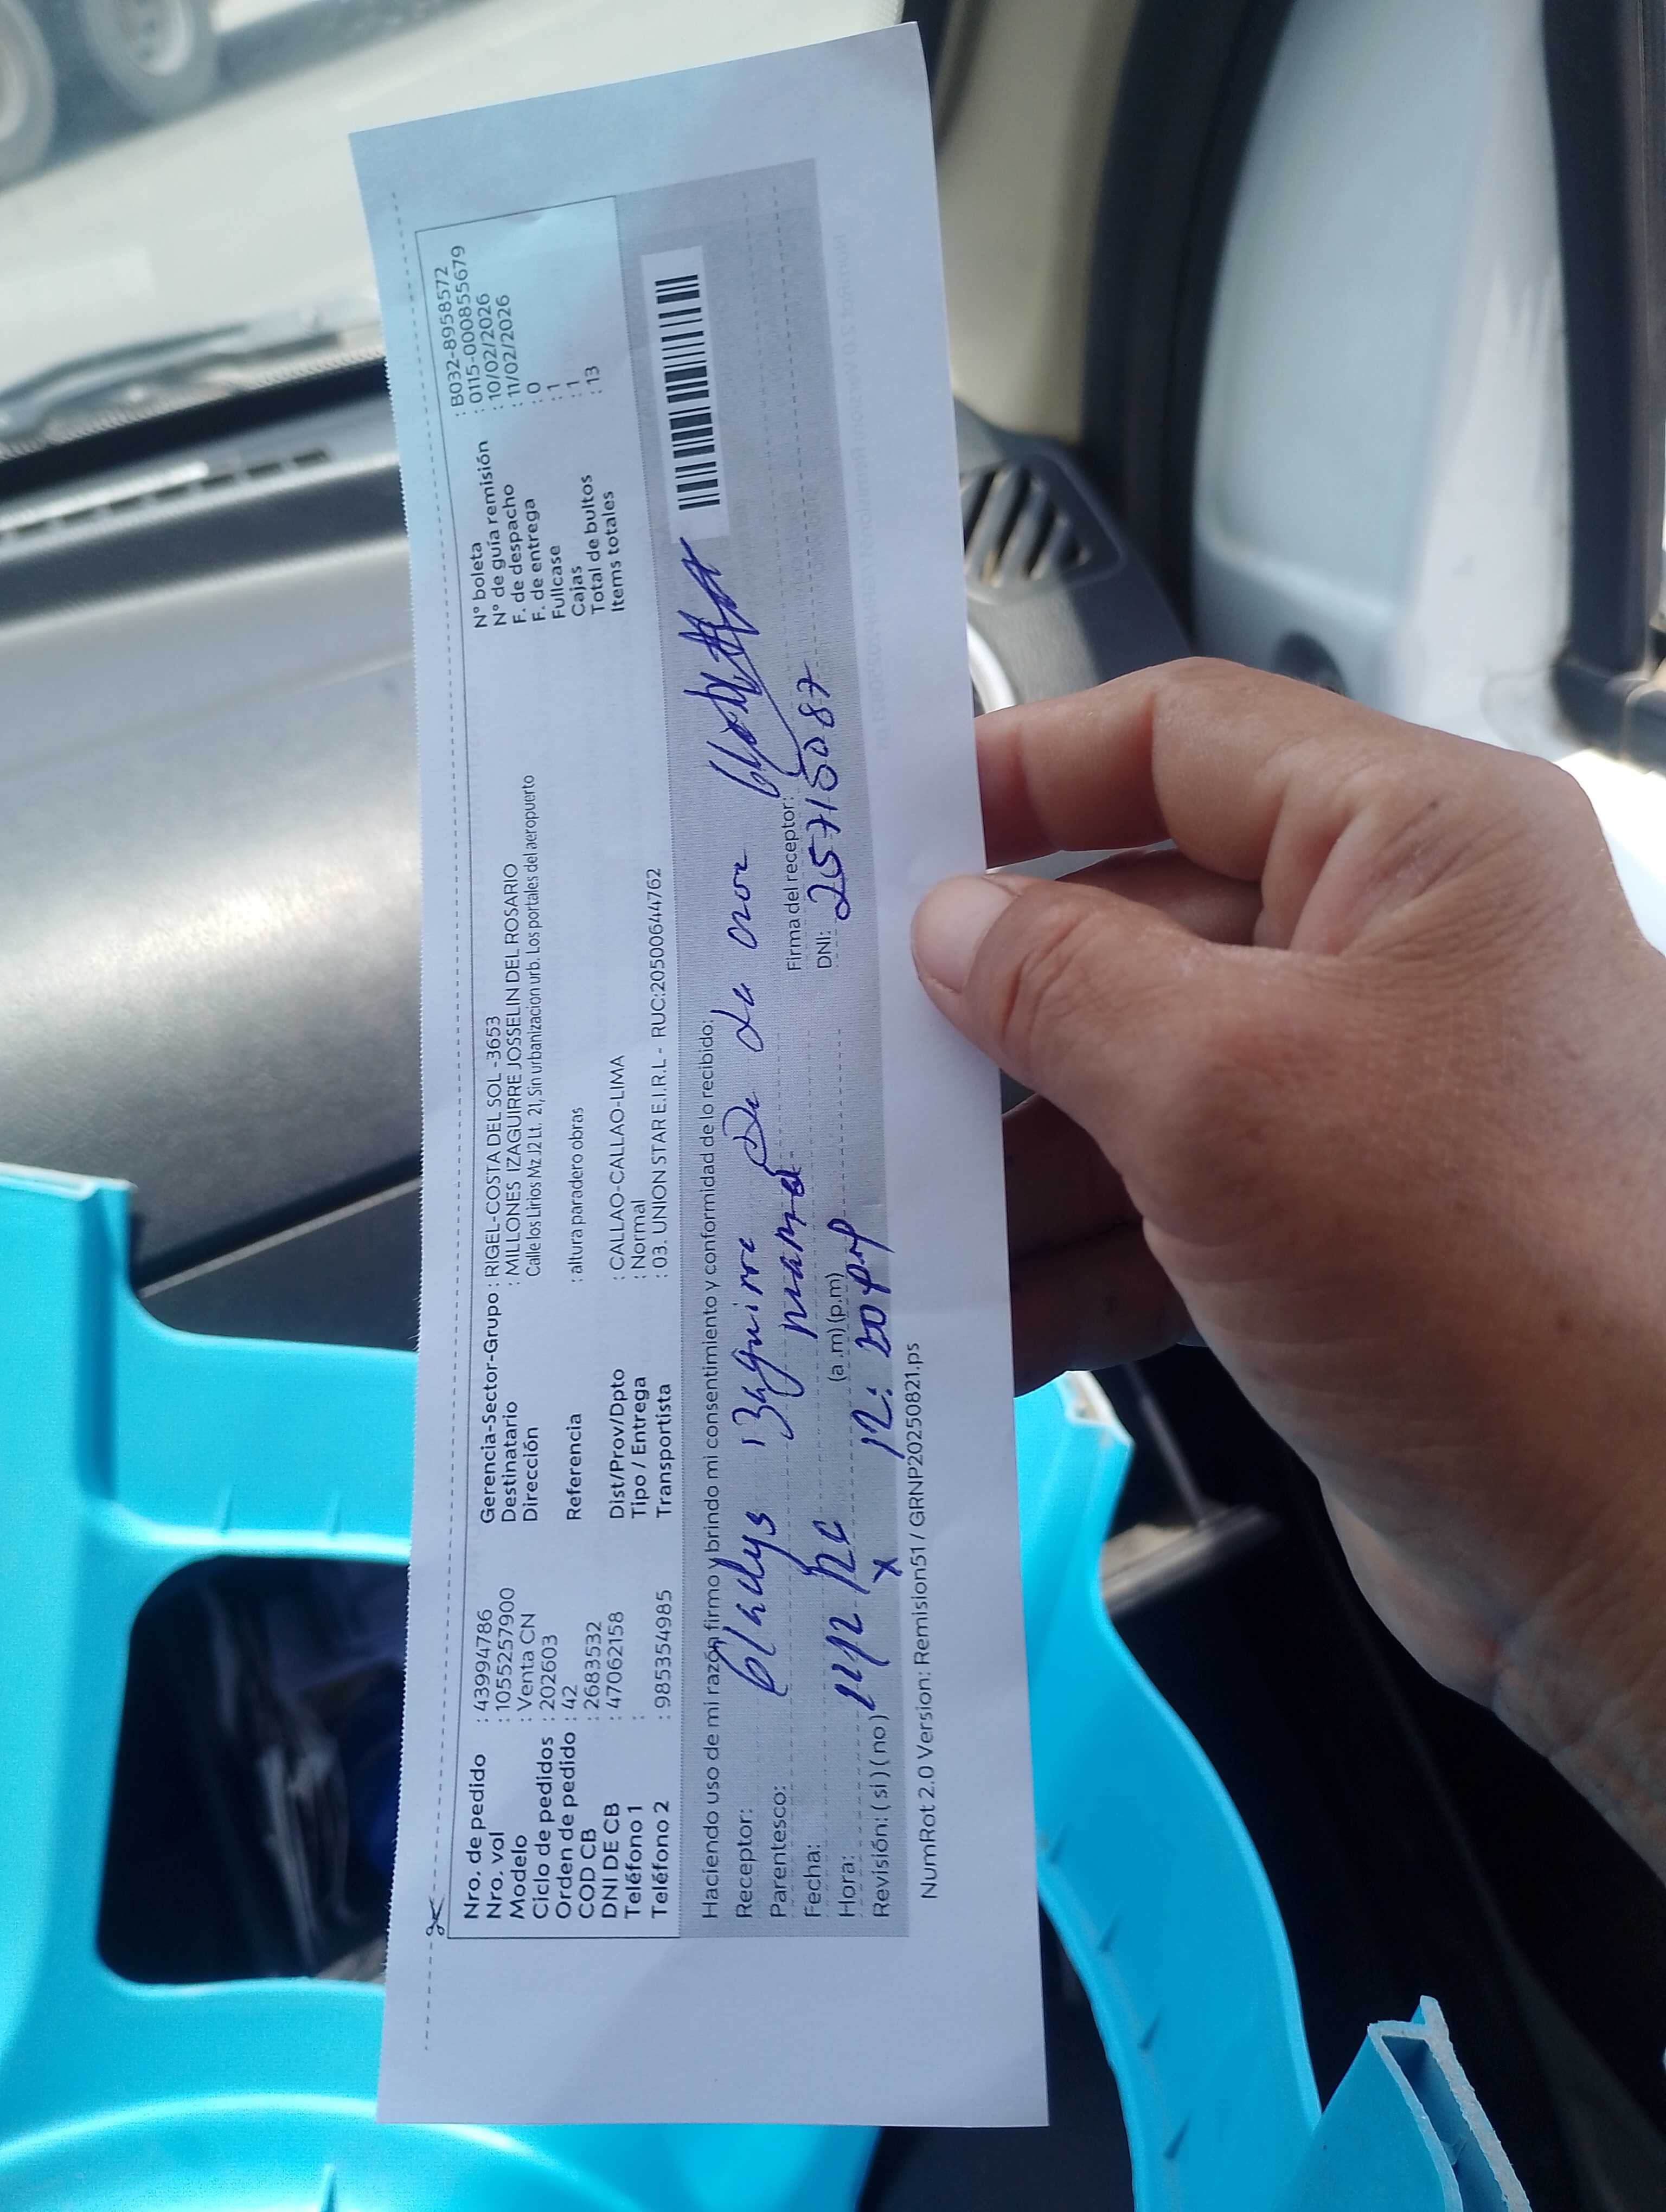 Nro. de pedido : 43994786 Gerencia-Sector-Grupo : RIGEL-COSTA DEL SOL -3653 N° boleta : B032-8958572
Nro. vol : 1055257900 Destinatario : MILLONES IZAGUIRRE JOSSELIN DEL ROSARIO N° de guía remisión : 0115-0008555679
Modelo : Venta CN Dirección Calle los Lirios Mz J2 Lt. 21, Sin urbanizacion urb. Los portales del aeropuerto F. de despacho : 10/02/2026
Ciclo de pedidos : 202603 F. de entrega : 11/02/2026
Orden de pedido : 42 Referencia : altura paradero obras Fullcase : 0
COD CB : 2683532 Cajas : 1
DNI DE CB : 47062158 Dist/Prov/Dpto : CALLAO-CALLAO-LIMA Total de bultos : 1
Teléfono 1 : Tipo / Entrega : Normal Items totales : 13
Teléfono 2 : 985354985 Transportista : 03. UNION STAR E.I.R.L - RUC:20500644762
Haciendo uso de mi razón firmo y brindo mi consentimiento y conformidad de lo recibido:
Receptor: Gladys Izaguirre De La
Parentesco: mamá Firma del receptor:
Fecha: DNI: 25715087
Hora: (a.m) (p.m) 12:20 pm
Revisión: ( si ) ( no ) x
NumRot 2.0 Version: Remision51 / GRNP20250821.ps